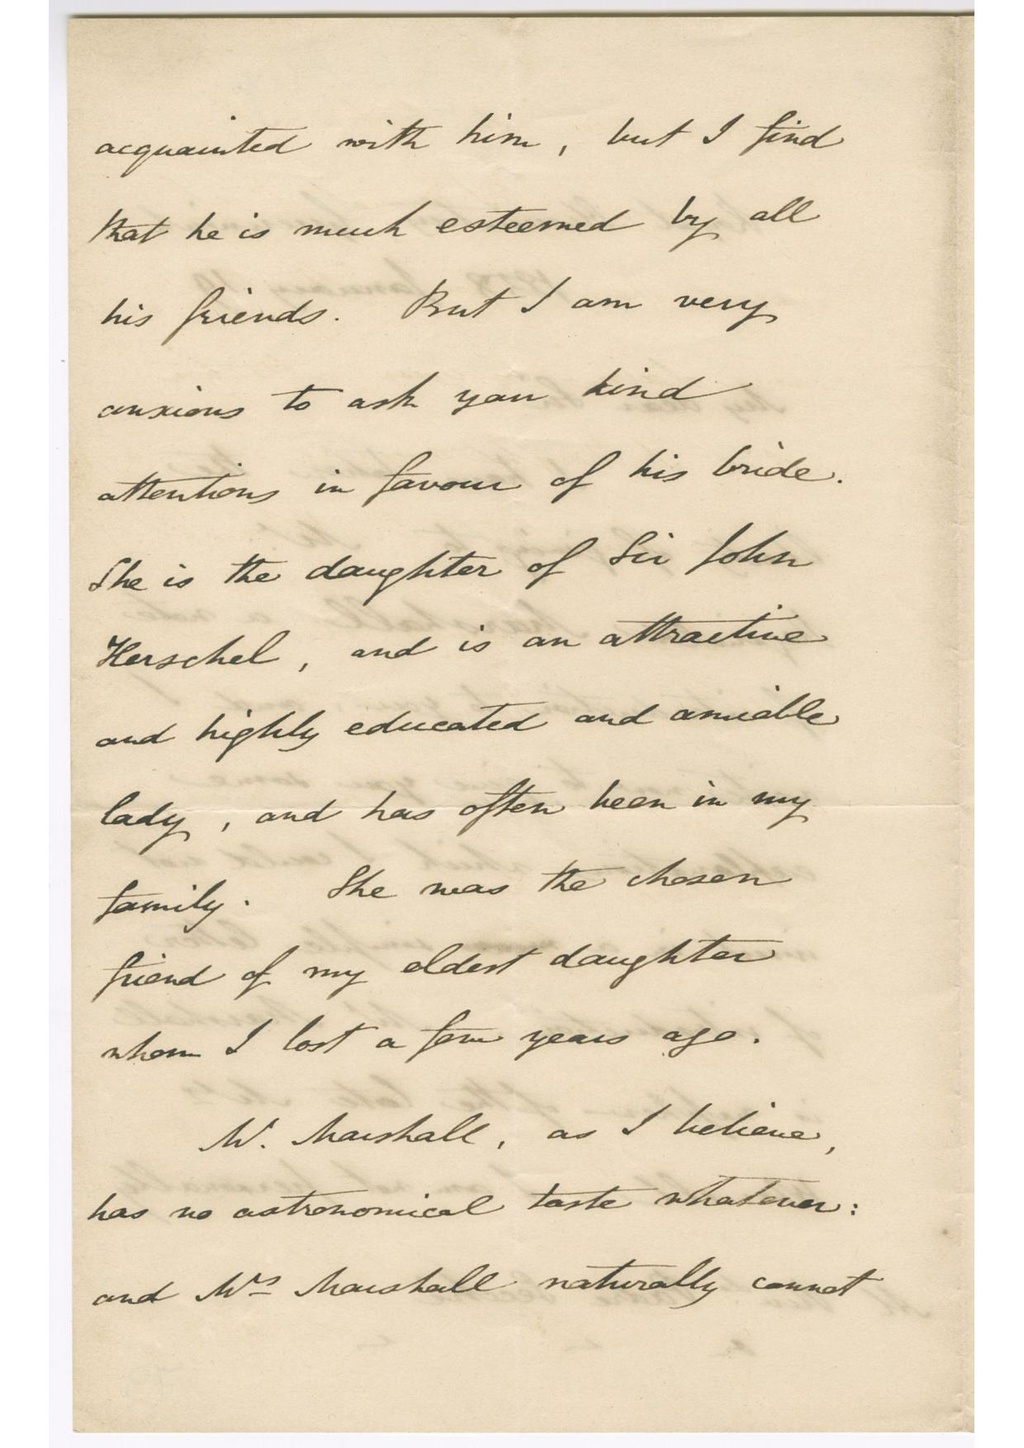 acquainted with him, but I find
that he is much esteemed by all
his friends. But I am very
anxious to ask your kind
attentions in favour of his bride.
She is the daughter of Sir John
Herschel, and is an attractive
and highly educated and amiable
lady, and has often been in my
family. She was the chosen
friend of my eldest daughter
whom I lost a few years ago.
Mr. Marshall, as I believe,
has no astronomical taste whatever:
and Mrs Marshall naturally cannot